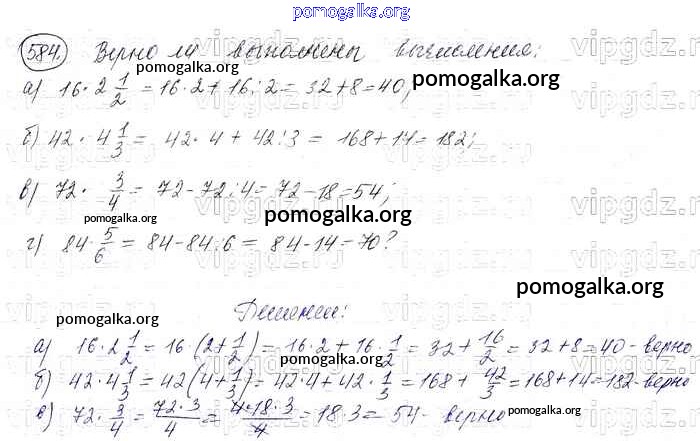 pomogalka.org
584. Верно ли выполнены вычисления:
pomogalka.org pomogalka.org vipgdz.ru
а) 16·2 1/2 = 16·2 + 16:2 = 32+8=40;
б) 42·4 1/3 = 42·4 + 42:3 = 168+14=182;
в) 72· 3/4 = 72-72:4=72-18=54;
pomogalka.org pomogalka.org vipgdz.ru
г) 84· 5/6 = 84-84:6 = 84-14=70?
pomogalka.org
Решение:
pomogalka.org vipgdz.ru
а) 16·2 1/2 = 16·(2+1/2) = 16·2 + 16·1/2 = 32 + 16/2 = 32+8=40 - верно
pomogalka.org
б) 42·4 1/3 = 42(4+1/3) = 42·4 + 42·1/3 = 168 + 42/3 = 168+14=182-верно
в) 72· 3/4 = 72·3/4 = 4·18·3/4 = 18·3 = 54 - верно
pomogalka.org pomogalka.org